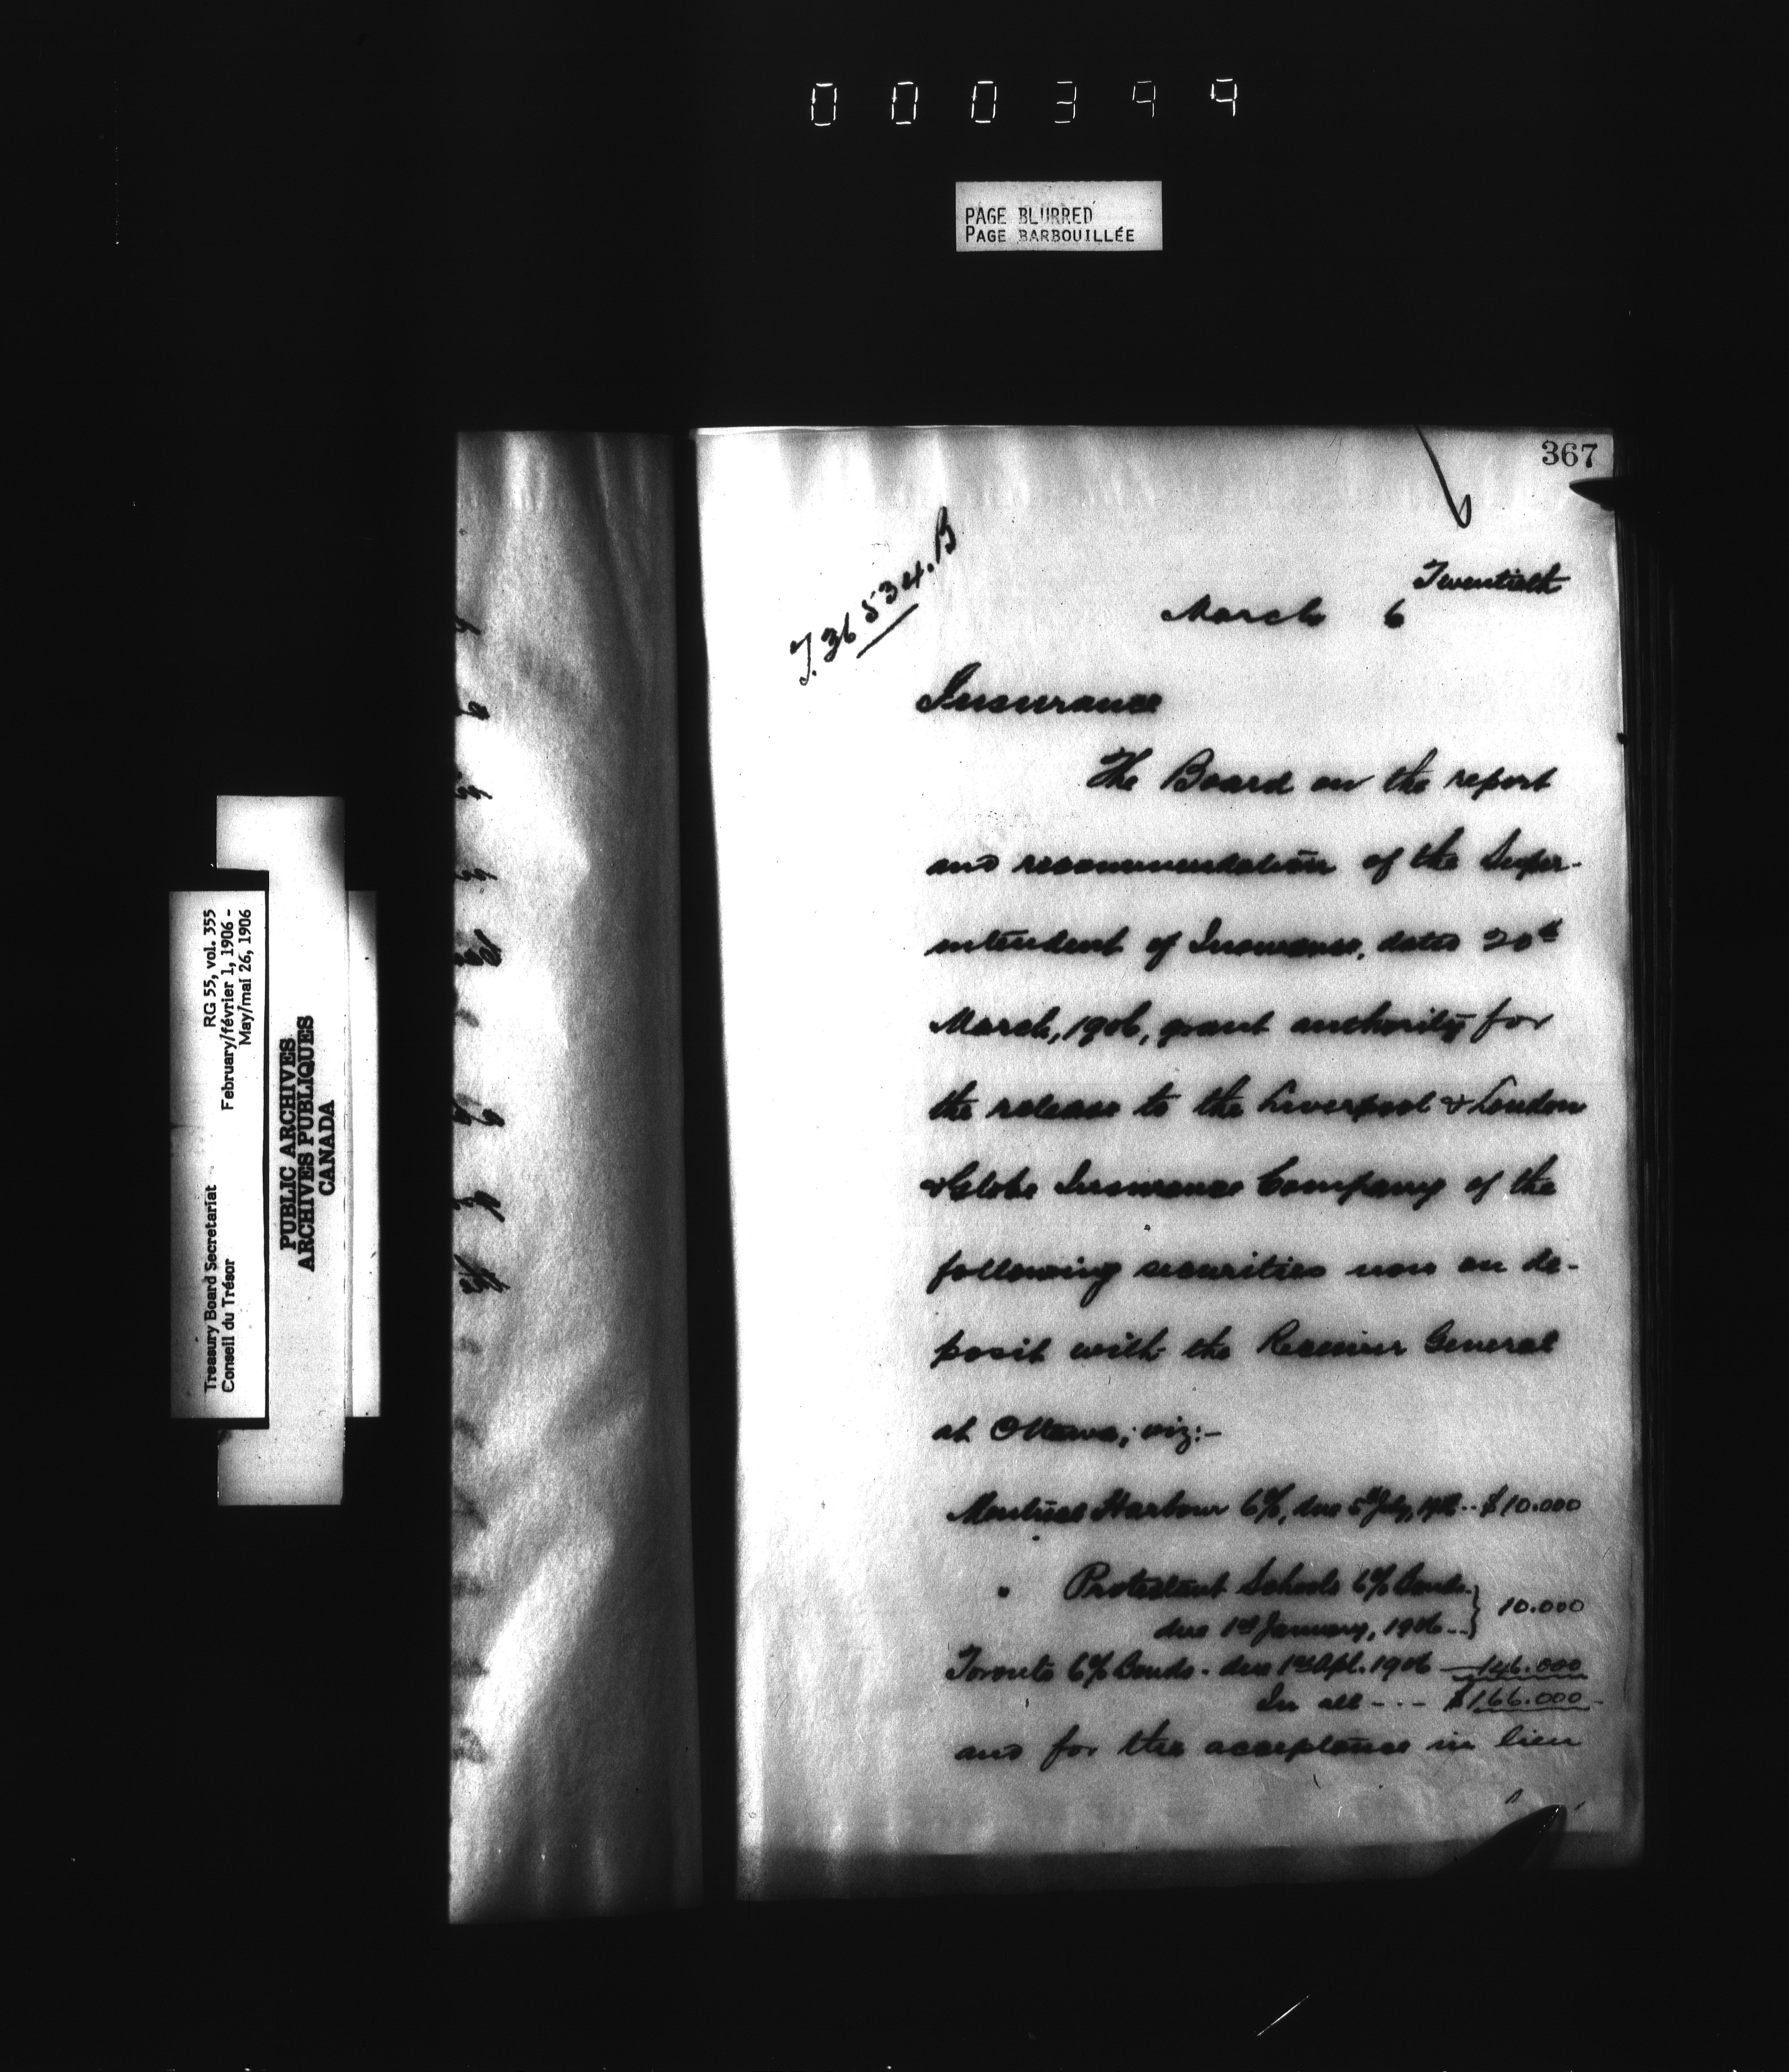 000399
PAGE BLURRED
PAGE BARBOUILLÉE
RG 55, vol. 355
February/février 1, 1906 -
May/mai 26, 1906
Treasury Board Secretariat
Conseil du Trésor
PUBLIC ARCHIVES
ARCHIVES PUBLIQUES
CANADA
367
T. 36534.B
Twentieth
March 6
Insurance
The Board on the report
and recommendation of the Super-
intendent of Insurance, dated 20th
March, 1906, grant authority for
the release to the Liverpool & London
& Globe Insurance Company of the
following securities now on de-
posit with the Receiver General
at Ottawa, viz:-
Montreal Harbour 6%, due 5th July, $10.000
" Protestant Schools 6% Bonds
due 1st January, 1906 -- } 10.000
Toronto 6% Bonds - due 1st Apl. 1906 — 146.000
In all - - - $166.000
and for the acceptance in lieu